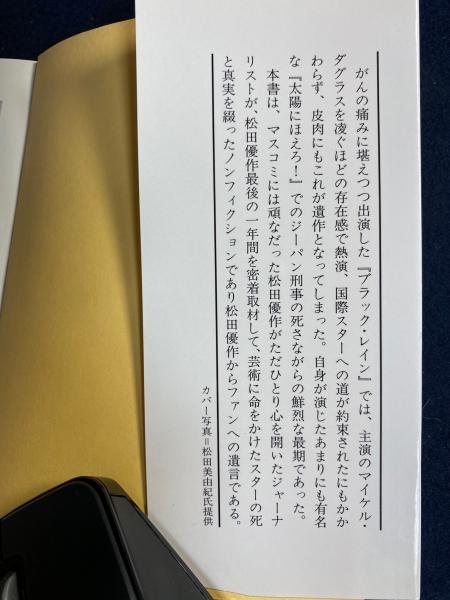 がんの痛みに堪えつつ出演した『ブラック・レイン』では、主演のマイケル・
ダグラスを凌ぐほどの存在感で熱演、国際スターへの道が約束されたにもかか
わらず、皮肉にもこれが遺作となってしまった。自身が演じたあまりにも有名
な『太陽にほえろ！』でのジーパン刑事の死さながらの鮮烈な最期であった。
本書は、マスコミには頑なだった松田優作がただひとり心を開いたジャーナ
リストが、松田優作最後の一年間を密着取材して、芸術に命をかけたスターの死
と真実を綴ったノンフィクションであり松田優作からファンへの遺言である。
カバー写真＝松田美由紀氏提供